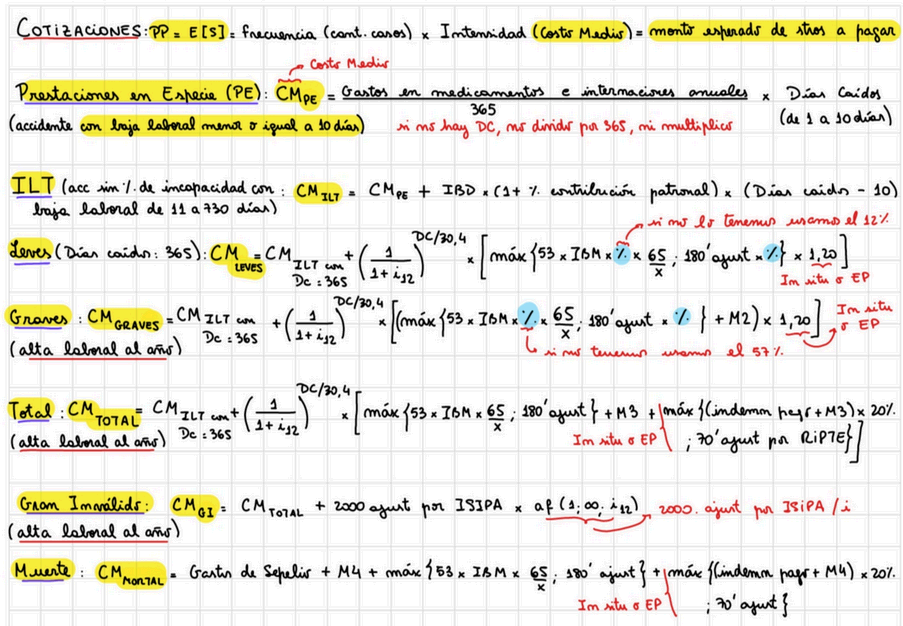 COTIZACIONES: PP = E[S] = Frecuencia (cant. casos) x Intensidad (Costo Medio) = monto esperado de stros a pagar
Costo Medio
Prestaciones en Especie (PE): CM_PE = Gastos en medicamentos e internaciones anuales / 365 x Días Caídos
(accidente con baja laboral menor o igual a 10 días) si no hay DC, no divido por 365, ni multiplico (de 1 a 10 días)
ILT (acc sin % de incapacidad con : CM_ILT = CM_PE + IBD x (1 + % contribución patronal) x (Días caídos - 10)
baja laboral de 11 a 730 días)
si no lo tenemos usamos el 12%
Leves (Días caídos: 365): CM_LEVES = CM_ILT con Dc = 365 + (1 / 1 + i_12)^DC/30,4 x [máx {53 x IBM x % x 65/x ; 180' ajust x %} x 1,20]
In situ o EP
Graves : CM_GRAVES = CM_ILT con Dc = 365 + (1 / 1 + i_12)^DC/30,4 x [(máx {53 x IBM x % x 65/x ; 180' ajust x % } + M2) x 1,20] In situ o EP
(alta laboral al año) si no tenemos usamos el 57%
Total : CM_TOTAL = CM_ILT con Dc = 365 + (1 / 1 + i_12)^DC/30,4 x [máx {53 x IBM x 65/x ; 180' ajust } + M3 + máx {(indemn pago + M3) x 20%
(alta laboral al año) In situ o EP ; 70' ajust por RIPTE}]
Gran Inválido: CM_GI = CM_TOTAL + 2000 ajust por ISIPA x af (1; ∞; i_12) 2000. ajust por ISIPA / i
(alta laboral al año)
Muerte : CM_MORTAL = Gastos de Sepelio + M4 + máx {53 x IBM x 65/x ; 180' ajust } + máx {(indemn pago + M4) x 20%
In situ o EP ; 70' ajust }